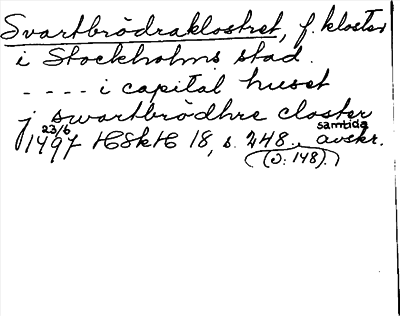 Svartbrödraklostret, f. kloster
i Stockholms stad.
---- i capital huset
j swartbrödhre closter
23/6 1497 HSkH 18, s. 248, samtida avskr.
(J: 148).